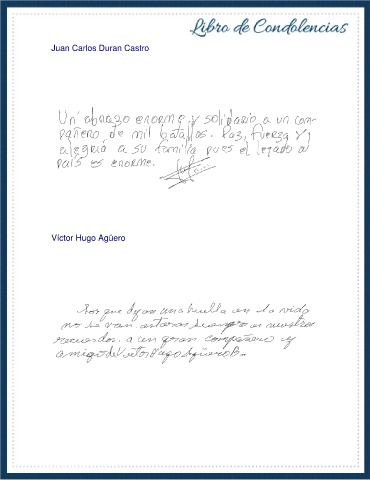 Libro de Condolencias
Juan Carlos Duran Castro
Un abrazo enorme y solidario a un com-
pañero de mil batallas. Paz, fuerza y
alegria a su familia pues el legado al
país es enorme.
Víctor Hugo Agüero
Los que dejan una huella en la vida
no se van. estaras siempre en nuestros
recuerdos. a un gran compañero y
amigo de Victor Hugo Agüero B.